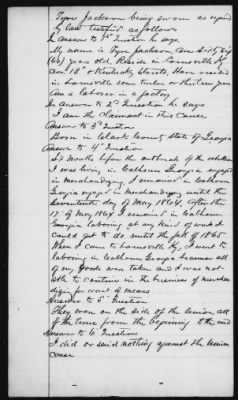 Tyre Jackson being sworn as required
by law testified as follows
In answer to 1st Question he says
My name is Tyre Jackson, am Sixty Six
(66) years old, Reside in Louisville Ky
Cor. 13th & Kentucky Streets, Have resided
in Louisville some twelve or thirteen years
Am a laborer in a factory
In answer to 2d Question he says
I am the Claimant in this Cause
Answer to 3d Question
Born in Clark County State of Georgia
Answer to 4th Question
Six Months before the outbreak of the rebellion
I was living in Calhoun Georgia engaged
in Merchandizing, I remained in Calhoun
Georgia engaged in Merchandizing until the
Seventeenth day of May 1864, After the
17th of May 1864 I remained in Calhoun
Georgia laboring at any kind of work I
could get to do until the fall of 1865
When I came to Louisville Ky, I went to
laboring in Calhoun Georgia because all
of my goods was taken and I was not
able to continue in the business of merchan
dizing for want of means
Answer to 5th Question
They was on the side of the Union all
of the time from the beginning to the end
Answer to 6 Question
I did or said nothing against the Union
cause